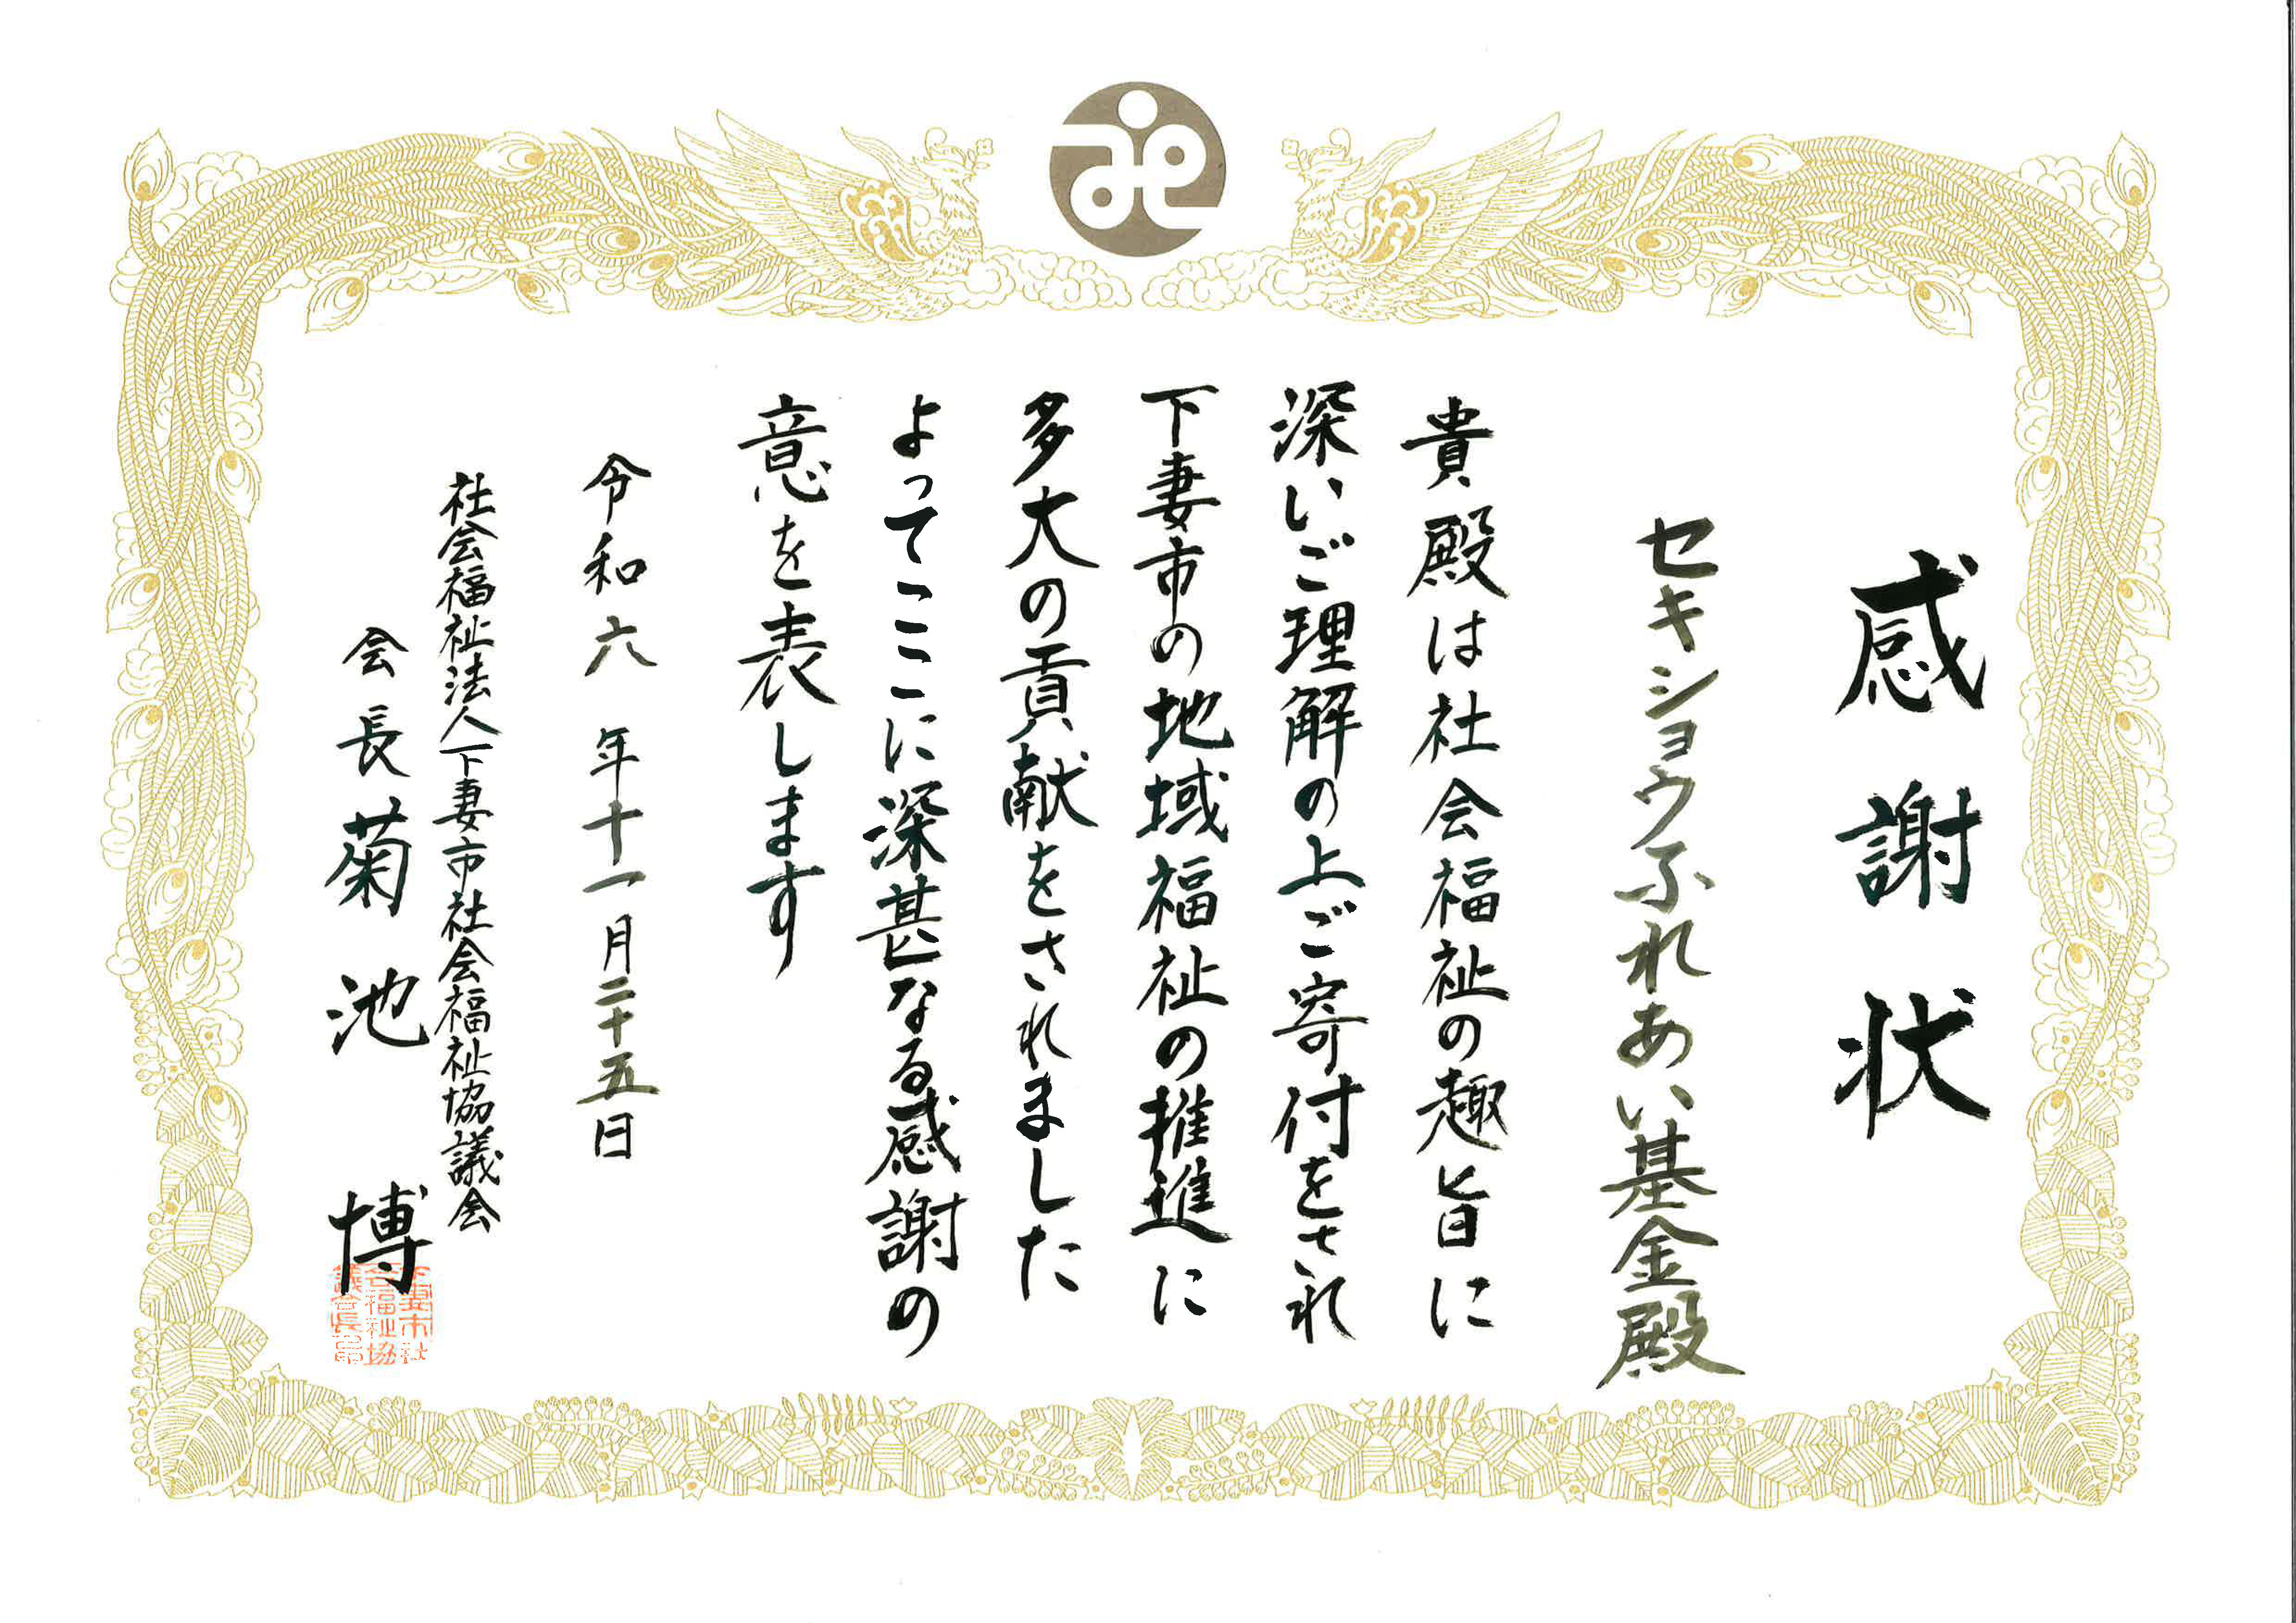 感謝状
セキショウふれあい基金殿
貴殿は社会福祉の趣旨に
深いご理解の上ご寄付をされ
下妻市の地域福祉の推進に
多大の貢献をされました
よってここに深甚なる感謝の
意を表します
令和六年十一月二十五日
社会福祉法人下妻市社会福祉協議会
会長菊池博
下妻市社
会福祉協
議会長印